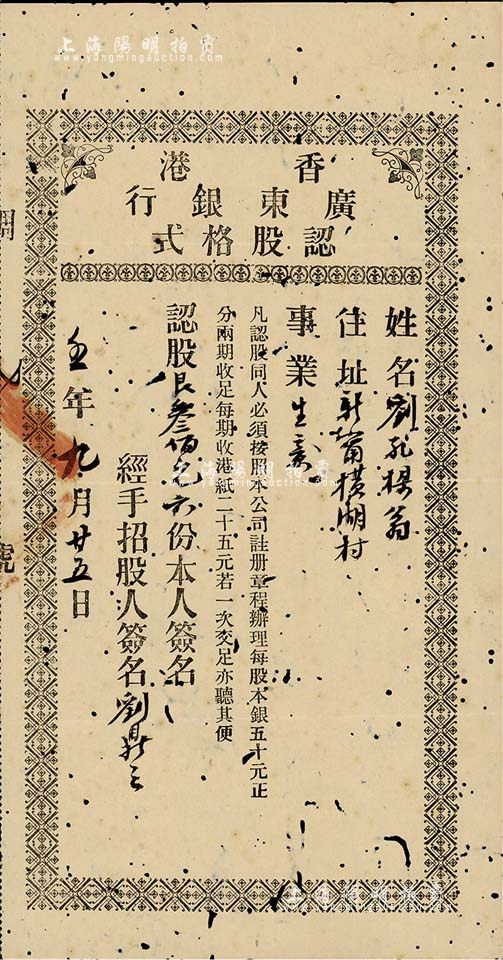 上海陽明拍賣
www.yangmingauction.com
香港
廣東銀行
認股格式
姓名劉孔揉翁
住址新寧橫湖村
事業生意
凡認股同人必須按照本公司註册章程辦理每股本銀五十元正
分兩期收足每期收港紙二十五元若一次交足亦聽其便
認股艮叁佰元六份本人簽名
經手招股人簽名劉鼎三
壬年九月廿五日
號
上海陽明拍賣
www.yangmingauction.com
上海陽明拍賣